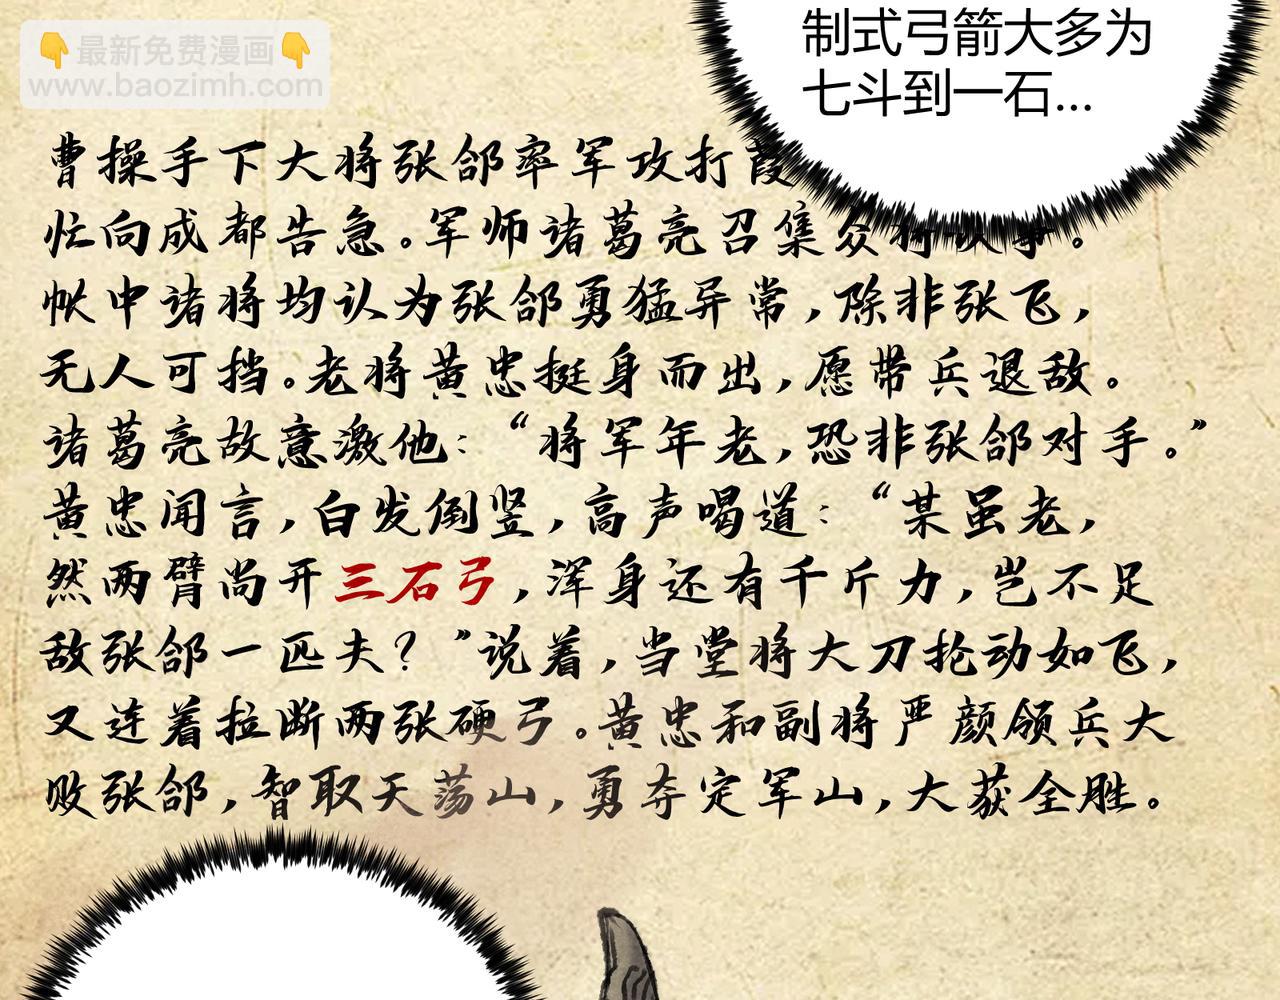 👇最新免费漫画👇
www.baozimh.com
制式弓箭大多为
七斗到一石…
曹操手下大将张郃率军攻打葭
忙向成都告急。军师诸葛亮召集众将议事。
帐中诸将均认为张郃勇猛异常,除非张飞,
无人可挡。老将黄忠挺身而出,愿带兵退敌。
诸葛亮故意激他:“将军年老,恐非张郃对手。”
黄忠闻言,白发倒竖,高声喝道:“某虽老,
然两臂尚开三石弓,浑身还有千斤力,岂不足
敌张郃一匹夫?”说着,当堂将大刀抡动如飞,
又连着拉断两张硬弓。黄忠和副将严颜领兵大
败张郃,智取天荡山,勇夺定军山,大获全胜。